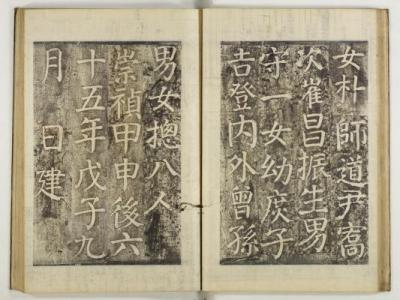 女朴師道尹㝯
次崔昌振生男
守一女幼庶子
吉登内外曾孫
男女摠八人
崇禎甲申後六
十五年戊子九
月　日建